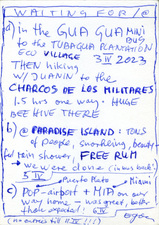 WAITING FOR /@
a) in the GUA GUA MINI BUS
to the TUBAGUA PLANTATION
ECO VILLAGE 3 IV 2023
THEN hiking
W/JUANIN to the
CHARCOS DE LOS MILITARES
1.5 hrs one way. HUGE
BEE HIVE THERE
b) @ PARADISE ISLAND: TONS
of people, snorkeling, beauty-
ful rain shower, FREE RUM
we were done (in bus back)
5 IV
Puerto Plata Miami
c) POP-airport → MIA on my
way home
6 IV